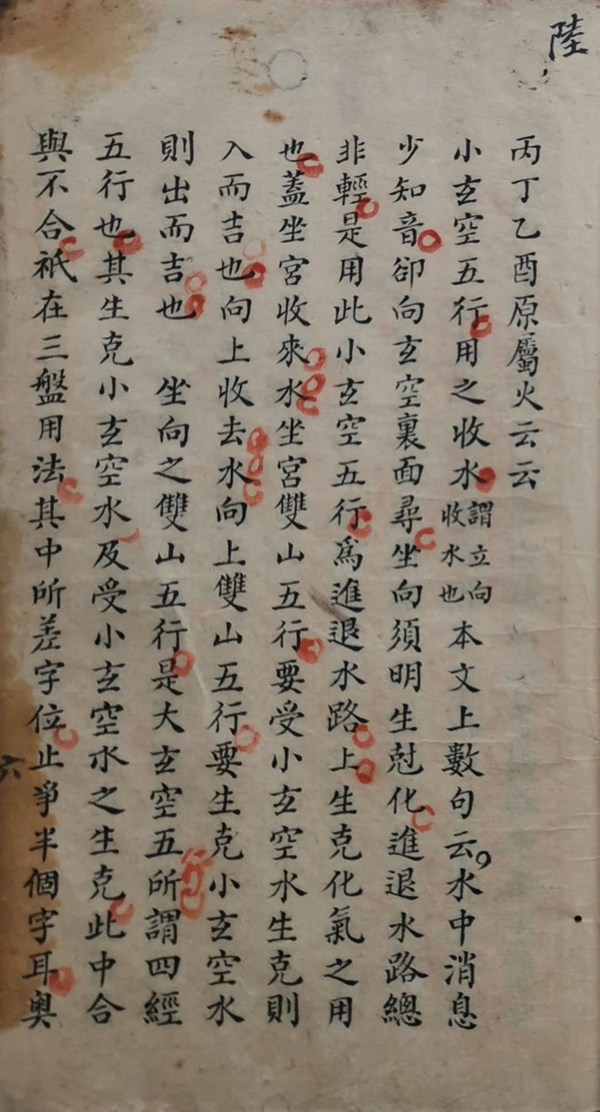 陸
丙丁乙酉原屬火云云
小玄空五行用之收水謂立向收水也本文上數句云水中消息
少知音卻向玄空裏面尋坐向須明生尅化進退水路總
非輕是用此小玄空五行爲進退水路上生克化氣之用
也蓋坐宮收來水坐宮雙山五行要受小玄空水生克則
入而吉也向上收去水向上雙山五行要生克小玄空水
則出而吉也 坐向之雙山五行是大玄空五行所謂四經
五行也其生克小玄空水及受小玄空水之生克此中合
與不合祇在三盤用法其中所差字位止爭半個字耳奥
六